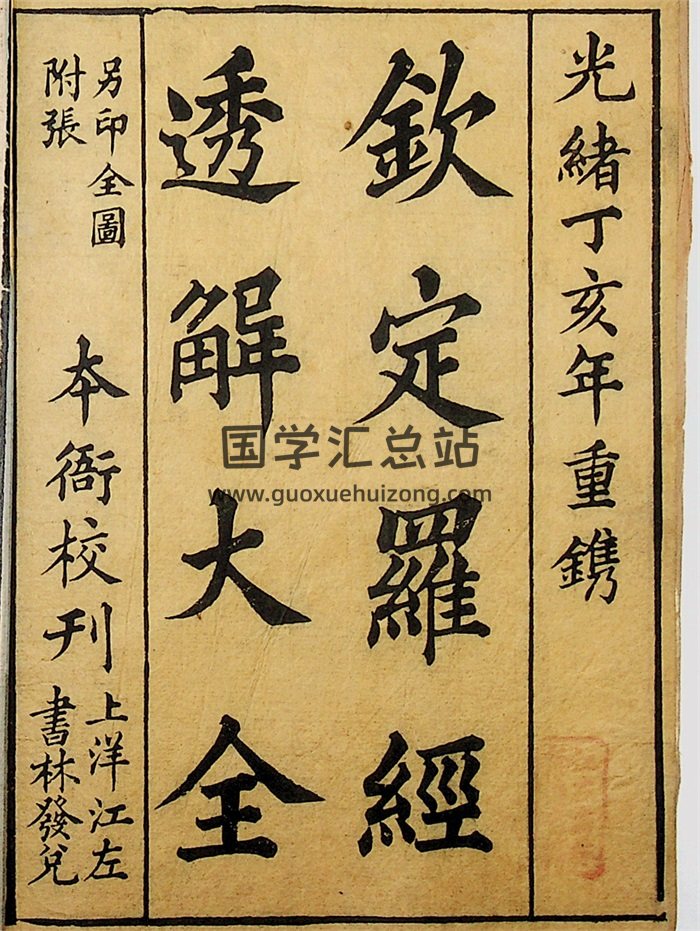 光緒丁亥年重鐫
欽定羅經
透解大全
另印全圖
附張
本衙校刊
上洋江左
書林發兌
国学汇总站
www.guoxuehuizong.com